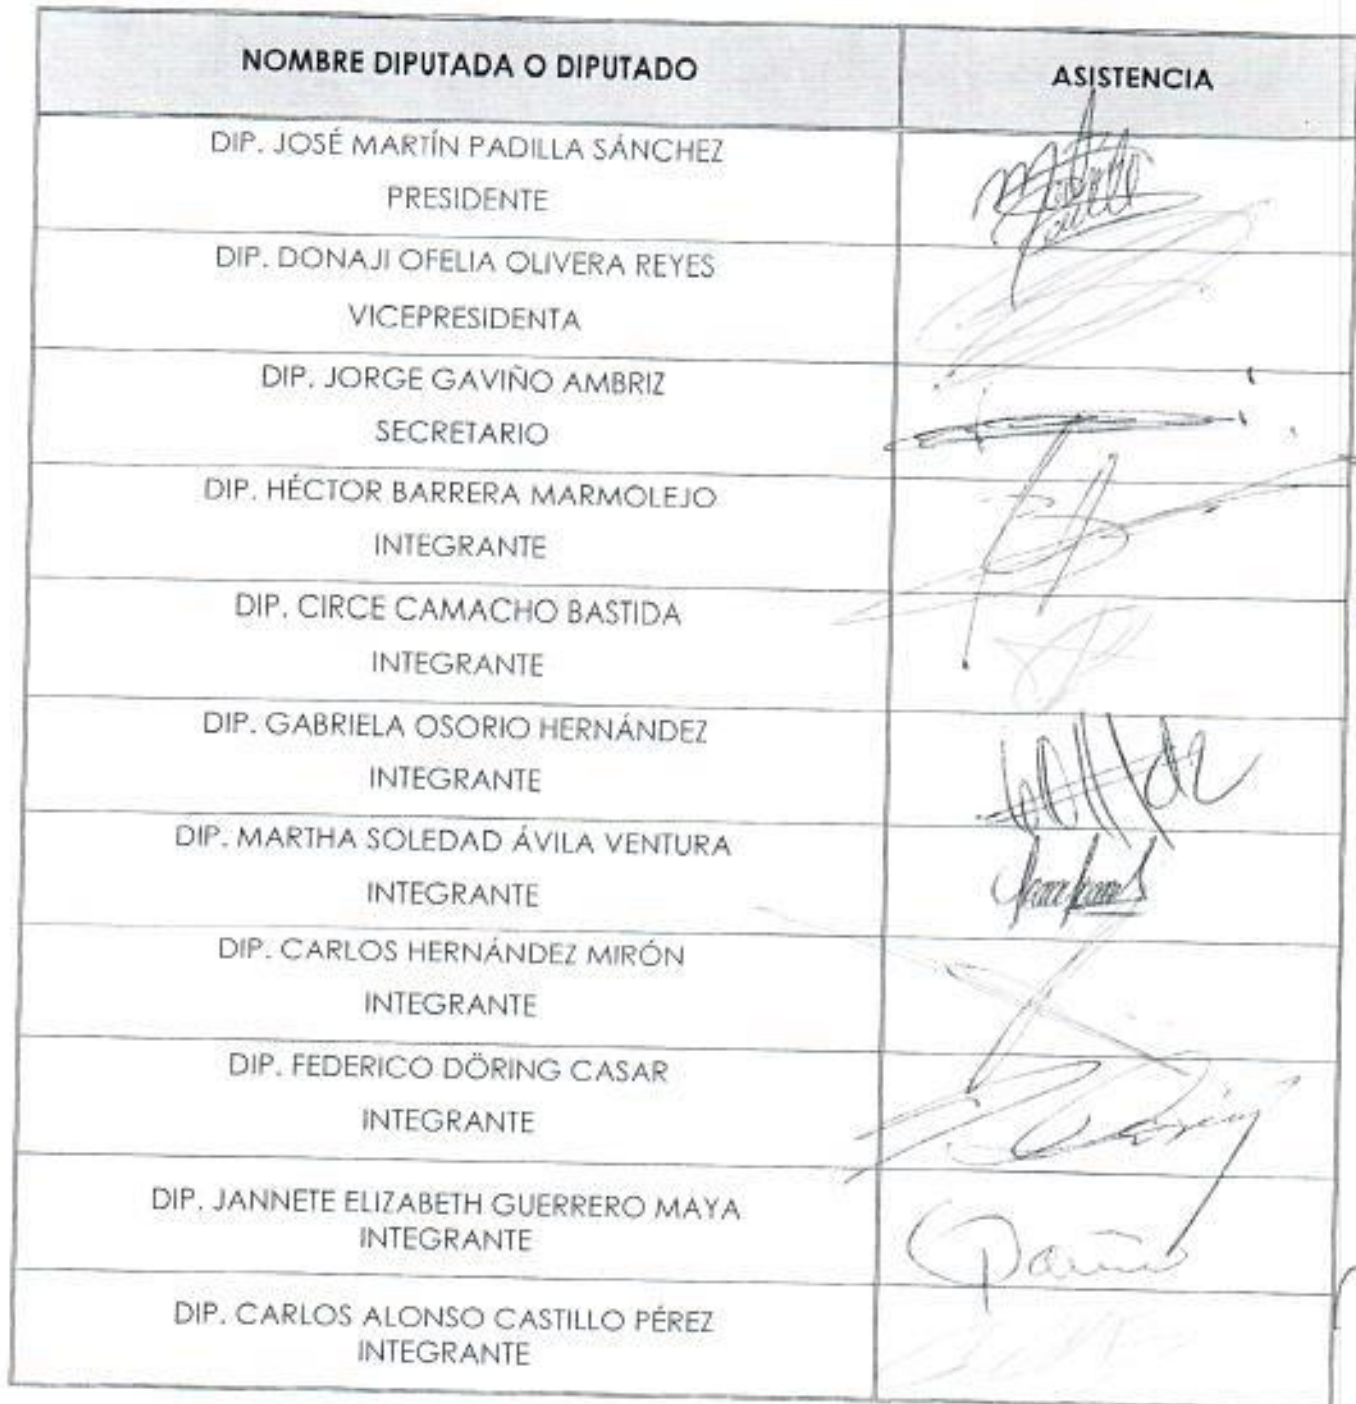 NOMBRE DIPUTADA O DIPUTADO
ASISTENCIA
DIP. JOSÉ MARTÍN PADILLA SÁNCHEZ
PRESIDENTE
DIP. DONAJI OFELIA OLIVERA REYES
VICEPRESIDENTA
DIP. JORGE GAVIÑO AMBRIZ
SECRETARIO
DIP. HÉCTOR BARRERA MARMOLEJO
INTEGRANTE
DIP. CIRCE CAMACHO BASTIDA
INTEGRANTE
DIP. GABRIELA OSORIO HERNÁNDEZ
INTEGRANTE
DIP. MARTHA SOLEDAD ÁVILA VENTURA
INTEGRANTE
DIP. CARLOS HERNÁNDEZ MIRÓN
INTEGRANTE
DIP. FEDERICO DÖRING CASAR
INTEGRANTE
DIP. JANNETE ELIZABETH GUERRERO MAYA
INTEGRANTE
DIP. CARLOS ALONSO CASTILLO PÉREZ
INTEGRANTE